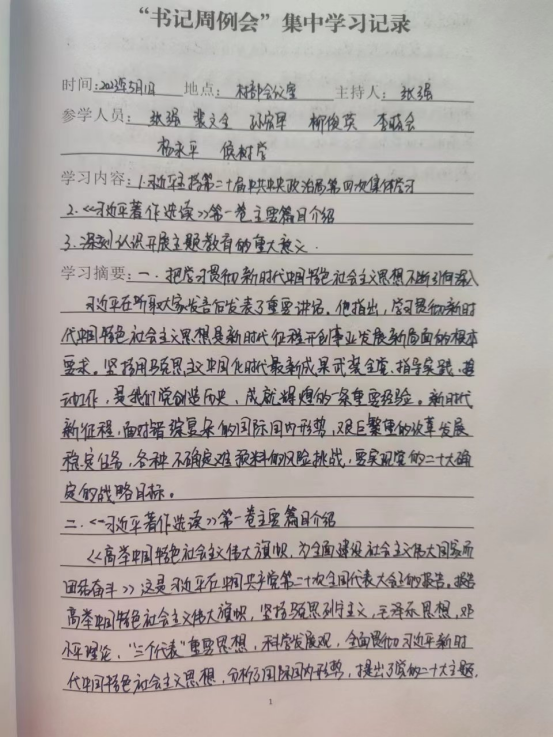 “书记周例会”集中学习记录
时间：2023年5月1日 地点：村部会议室 主持人：张强
参学人员：张强 裴文全 孙宏军 柳俊英
杨永平 侯树堂
学习内容：1.习近平主持第二十届中共中央政治局第四次集体学习
2.《习近平著作选读》第一卷主要篇目介绍
3.深刻认识开展主题教育的重大意义.
学习摘要：一、把学习贯彻新时代中国特色社会主义思想不断引向深入
习近平在听取大家发言后发表了重要讲话。他指出，学习贯彻新时
代中国特色社会主义思想是新时代征程开创事业发展新局面的根本
要求。坚持用马克思主义中国化时代最新成果武装全党、指导实践、推
动工作，是我们党创造历史、成就辉煌的一条重要经验。新时代
新征程，面对错综复杂的国际国内形势，艰巨繁重的改革发展
稳定任务，各种不确定难预料的风险挑战，要实现党的二十大确
定的战略目标。
二、《习近平著作选读》第一卷主要篇目介绍
《高举中国特色社会主义伟大旗帜，为全面建设社会主义伟大国家而
团结奋斗》这是习近平在中国共产党第二十次全国代表大会的报告。报告
高举中国特色社会主义伟大旗帜，坚持马克思列宁主义，毛泽东思想，邓
小平理论，“三个代表”重要思想，科学发展观，全面贯彻习近平新时
代中国特色社会主义思想，分析了国际国内形势，提出了党的二十大主题.
1